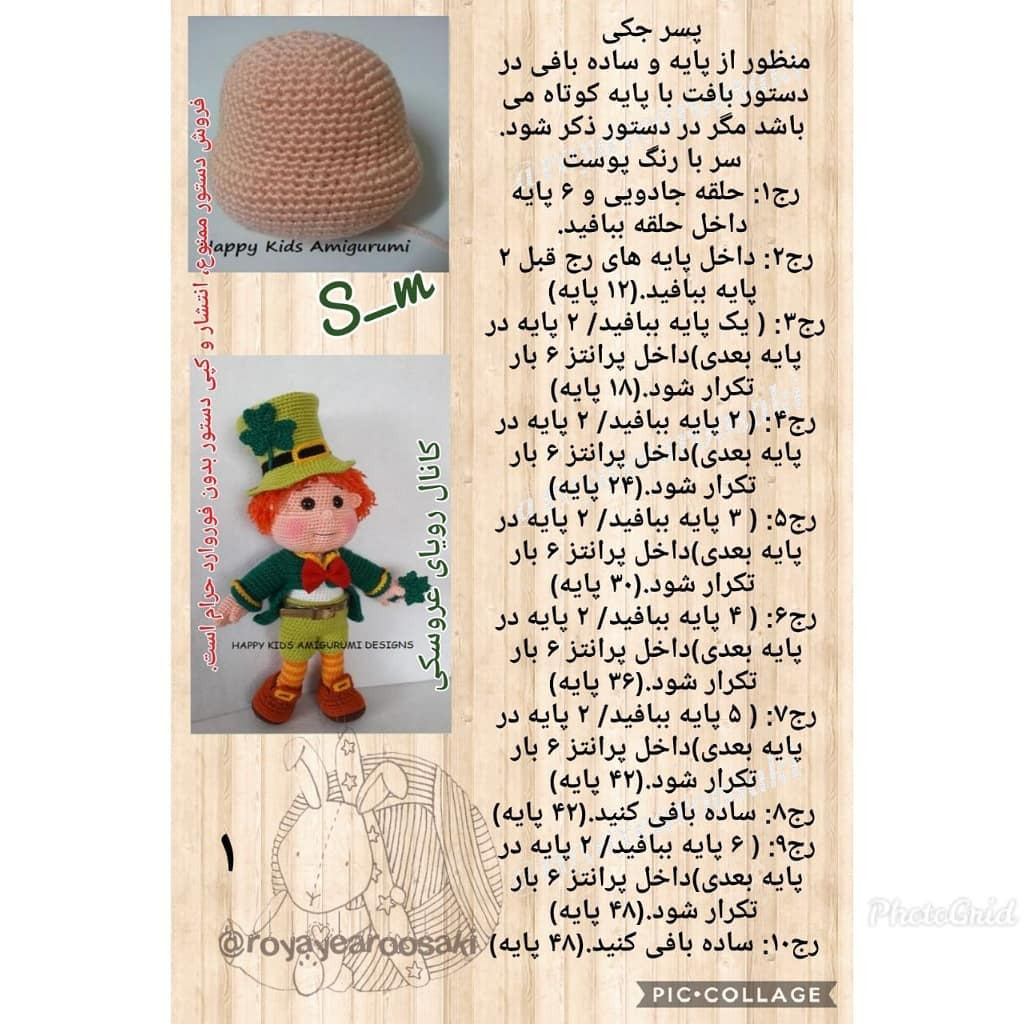 پسر جکی
منظور از پایه و ساده بافی در
دستور بافت با پایه کوتاه می
باشد مگر در دستور ذکر شود.
سر با رنگ پوست
رج۱: حلقه جادویی و ۶ پایه
داخل حلقه ببافید.
رج۲: داخل پایه های رج قبل ۲
پایه ببافید.(۱۲ پایه)
رج۳: ( یک پایه ببافید/ ۲ پایه در
پایه بعدی)داخل پرانتز ۶ بار
تکرار شود.(۱۸ پایه)
رج۴: ( ۲ پایه ببافید/ ۲ پایه در
پایه بعدی)داخل پرانتز ۶ بار
تکرار شود.(۲۴ پایه)
رج۵: ( ۳ پایه ببافید/ ۲ پایه در
پایه بعدی)داخل پرانتز ۶ بار
تکرار شود.(۳۰ پایه)
رج۶: ( ۴ پایه ببافید/ ۲ پایه در
پایه بعدی)داخل پرانتز ۶ بار
تکرار شود.(۳۶ پایه)
رج۷: ( ۵ پایه ببافید/ ۲ پایه در
پایه بعدی)داخل پرانتز ۶ بار
تکرار شود.(۴۲ پایه)
رج۸: ساده بافی کنید.(۴۲ پایه)
رج۹: ( ۶ پایه ببافید/ ۲ پایه در
پایه بعدی)داخل پرانتز ۶ بار
تکرار شود.(۴۸ پایه)
رج۱۰: ساده بافی کنید.(۴۸ پایه)
Happy Kids Amigurumi
S_m
فروش دستور ممنوع، انتشار و کپی دستور بدون فوروارد حرام است.
کانال رویای عروسکی
HAPPY KIDS AMIGURUMI DESIGNS
۱
@royayearoosaki
PhotoGrid
PIC•COLLAGE